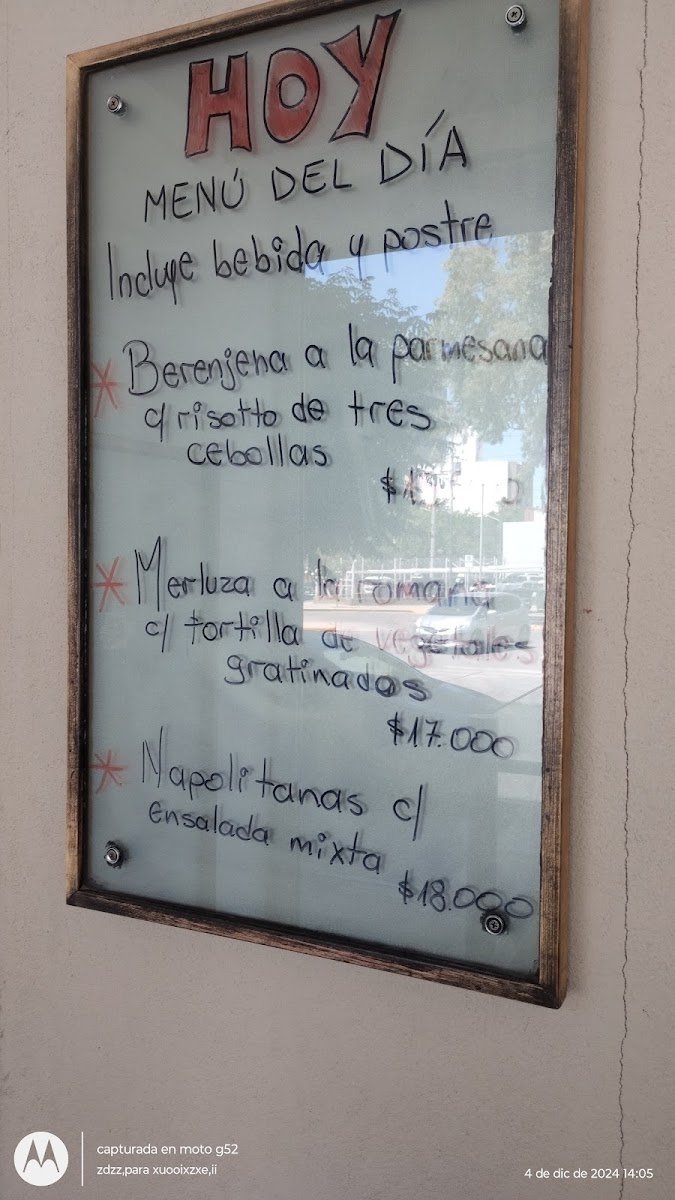 HOY
MENÚ DEL DÍA
Incluye bebida y postre
* Berenjena a la parmesana
c/ risotto de tres
cebollas
* Merluza a la romana
c/ tortilla de vegetales
gratinados
$17.000
* Napolitanas c/
ensalada mixta
$18.000
capturada en moto g52
zdzz,para xuooixzxe,ii
4 de dic de 2024 14:05